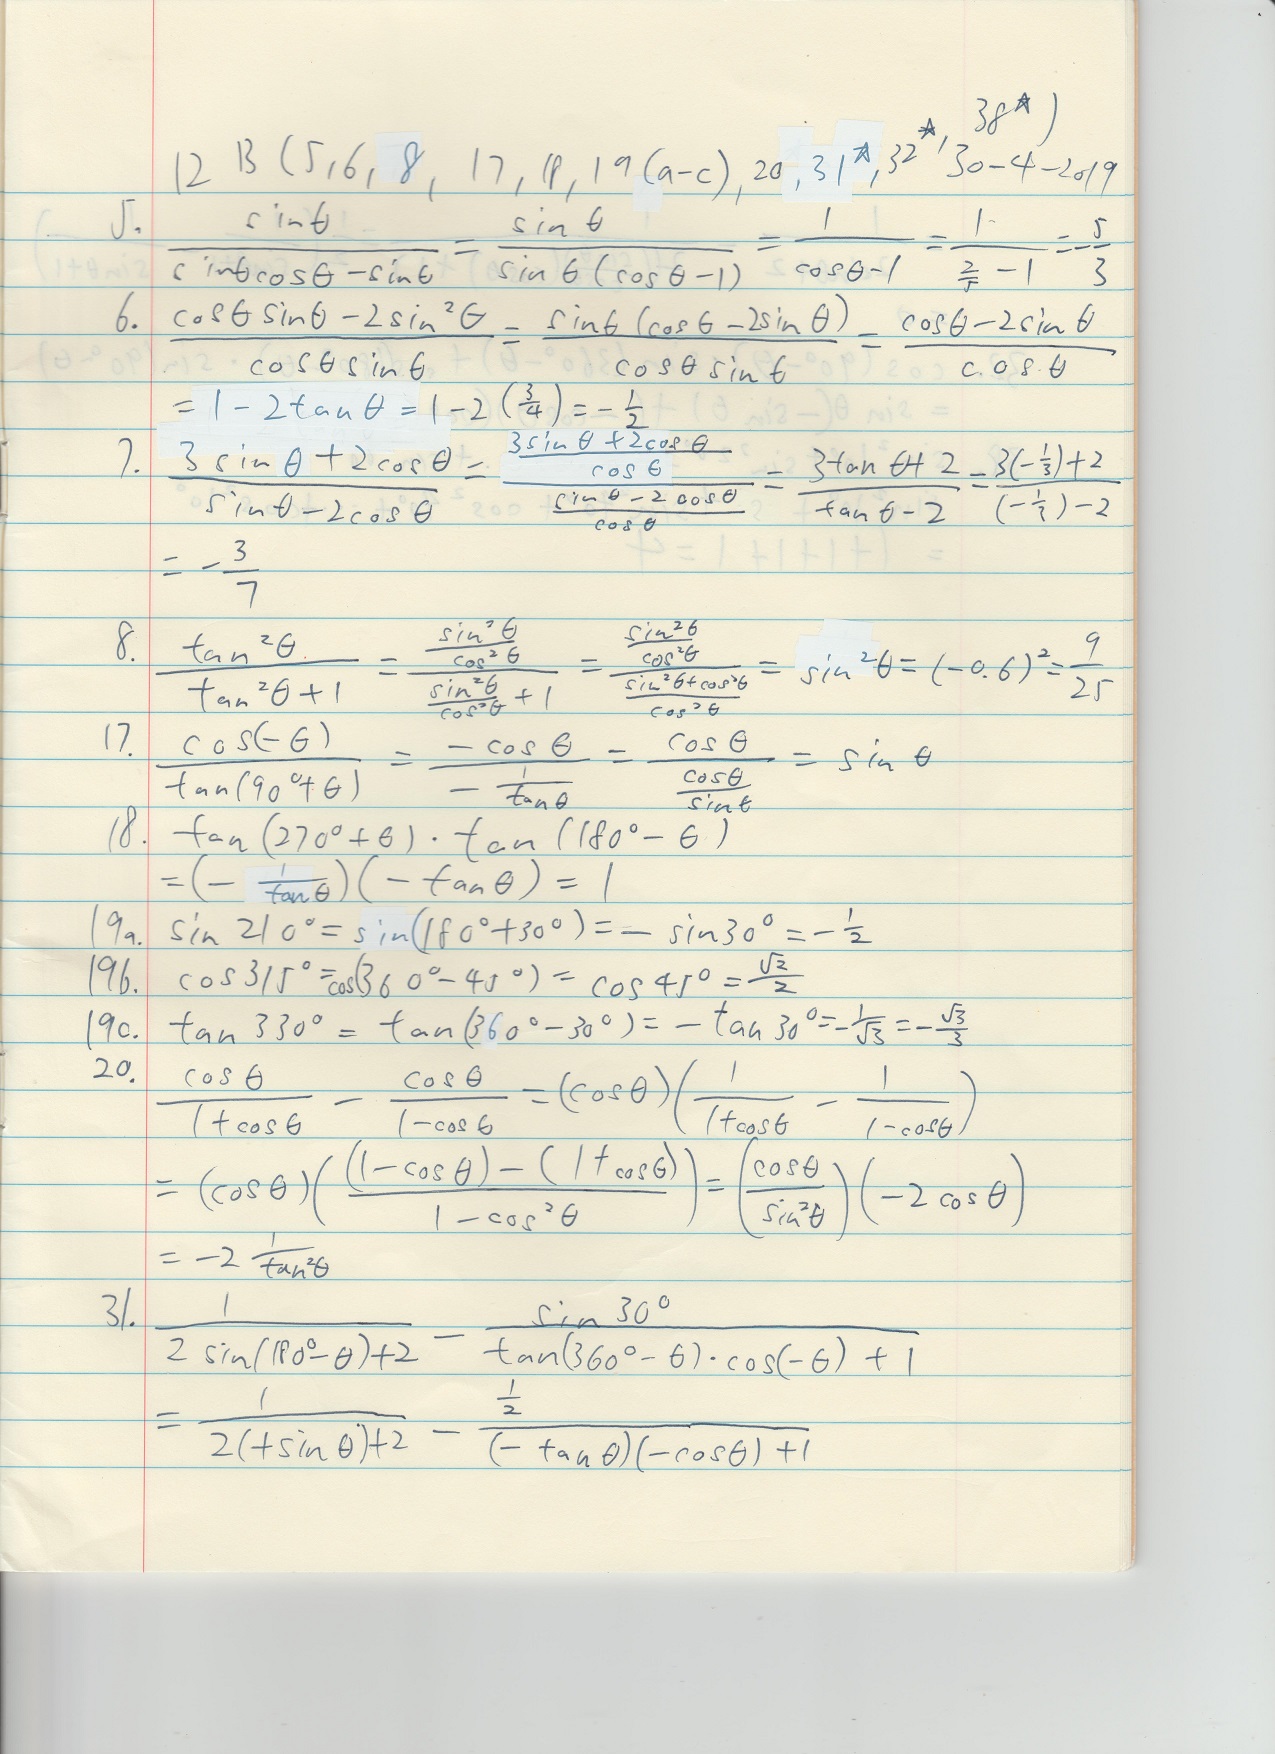 38☆)
12 B (5,6, 8, 17, 18, 19(a-c), 20, 31☆, 32☆, 30-4-2019
5. sinθ/(sinθcosθ-sinθ) = sinθ/(sinθ(cosθ-1)) = 1/(cosθ-1) = 1/(2/5-1) = -5/3
6. (cosθsinθ-2sin²θ)/(cosθsinθ) = (sinθ(cosθ-2sinθ))/(cosθsinθ) = (cosθ-2sinθ)/cosθ
= 1-2tanθ = 1-2(3/4) = -1/2
7. (3sinθ+2cosθ)/(sinθ-2cosθ) = ((3sinθ+2cosθ)/cosθ)/((sinθ-2cosθ)/cosθ) = (3tanθ+2)/(tanθ-2) = (3(-1/3)+2)/((-1/3)-2)
= -3/7
8. tan²θ/(tan²θ+1) = (sin²θ/cos²θ)/(sin²θ/cos²θ+1) = (sin²θ/cos²θ)/((sin²θ+cos²θ)/cos²θ) = sin²θ = (-0.6)² = 9/25
17. cos(-θ)/tan(90°+θ) = -cosθ/(-1/tanθ) = cosθ/(cosθ/sinθ) = sinθ
18. tan(270°+θ)·tan(180°-θ)
=(-1/tanθ)(-tanθ) = 1
19a. sin210° = sin(180°+30°) = -sin30° = -1/2
19b. cos315° = cos(360°-45°) = cos45° = √2/2
19c. tan330° = tan(360°-30°) = -tan30° = -1/√3 = -√3/3
20. cosθ/(1+cosθ) - cosθ/(1-cosθ) = (cosθ)(1/(1+cosθ) - 1/(1-cosθ))
= (cosθ)(((1-cosθ)-(1+cosθ))/(1-cos²θ)) = (cosθ/sin²θ)(-2cosθ)
= -2 1/tan²θ
31. 1/(2sin(180°-θ)+2) - sin30°/(tan(360°-θ)·cos(-θ)+1)
= 1/(2(+sinθ)+2) - (1/2)/((-tanθ)(-cosθ)+1)